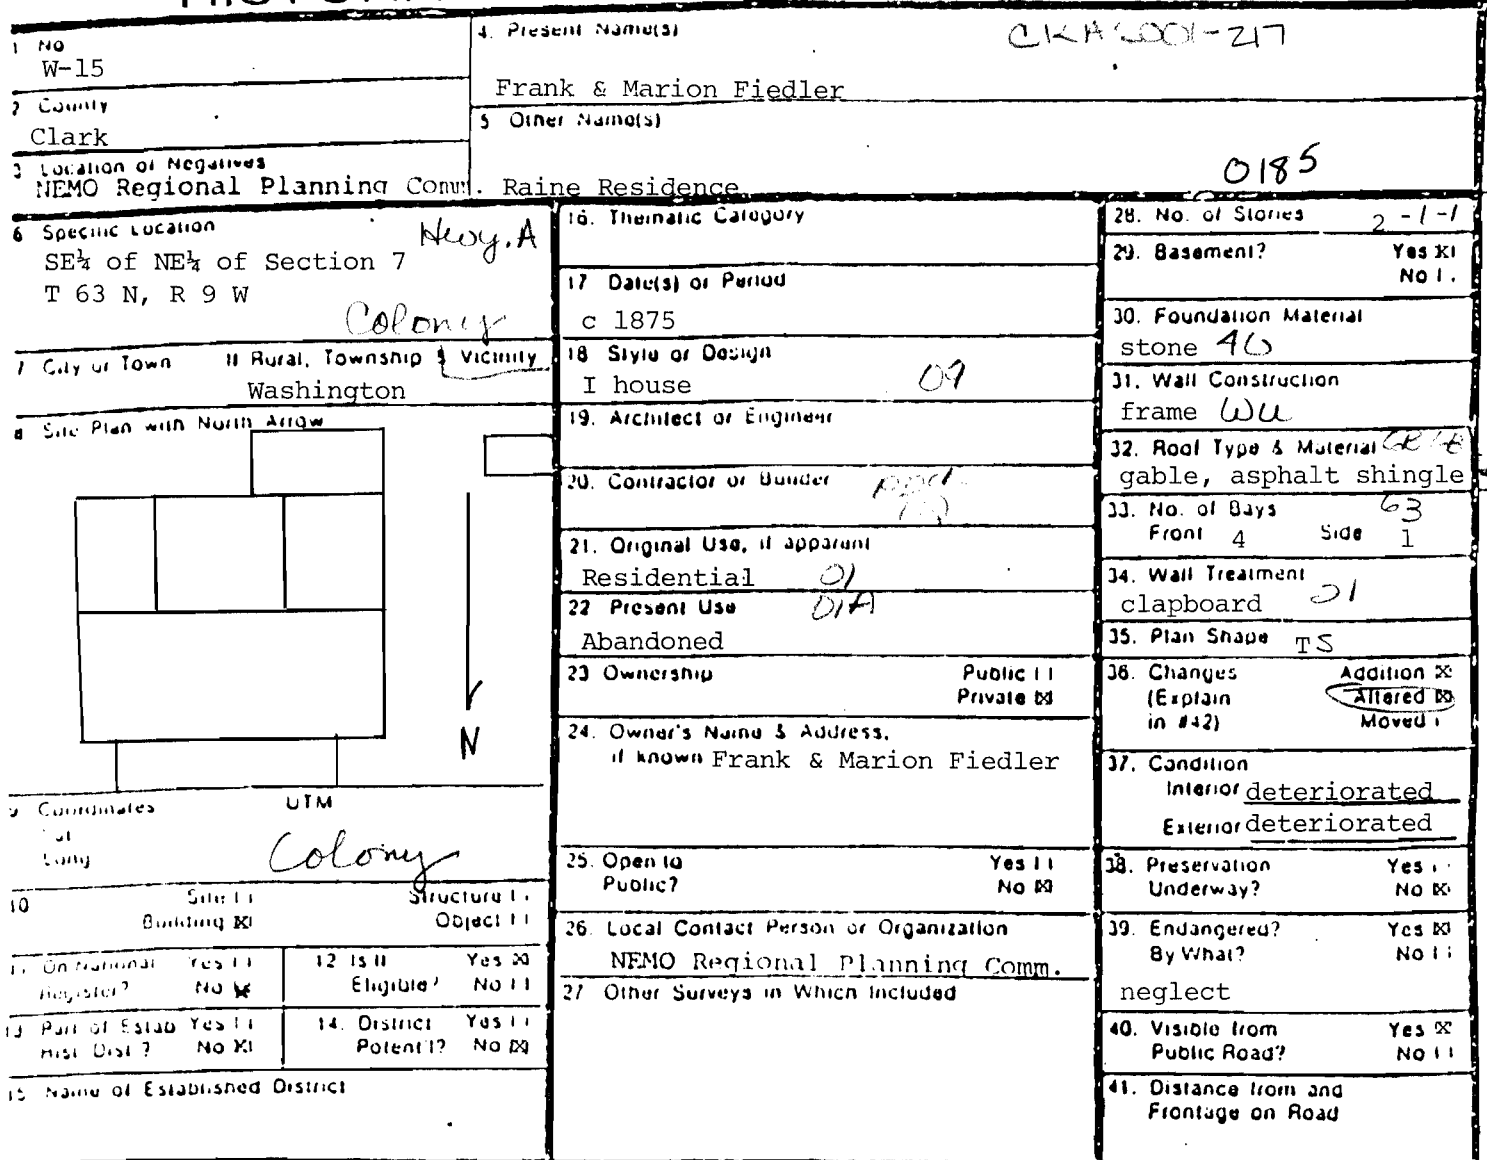 1 No
W-15
4. Present Name(s)
Frank & Marion Fiedler
2 County
Clark
5 Other Name(s)
0185
3 Location of Negatives
NEMO Regional Planning Comm.
Raine Residence
6 Specific Location
Hwy. A
SE¼ of NE¼ of Section 7
T 63 N, R 9 W
Colony
7 City or Town If Rural, Township & Vicinity
Washington
8 Site Plan with North Arrow
N
9 Coordinates UTM
Lat
Long
Colony
10 Site Structure
Building Object
11 On National Register? Yes No
12 Is it Eligible? Yes No
13 Part of Estab Hist. Dist.? Yes No
14. District Potent'l? Yes No
15 Name of Established District
16. Thematic Category
17 Date(s) or Period
c 1875
18 Style or Design
I house 09
19. Architect or Engineer
20. Contractor or Builder
21. Original Use, if apparent
Residential 01
22 Present Use 01A
Abandoned
23 Ownership Public
Private
24. Owner's Name & Address,
if known Frank & Marion Fiedler
25. Open to Yes
Public? No
26. Local Contact Person or Organization
NEMO Regional Planning Comm.
27 Other Surveys in Which Included
28. No. of Stories 2-1-1
29. Basement? Yes
No
30. Foundation Material
stone 40
31. Wall Construction
frame
32. Roof Type & Material
gable, asphalt shingle
33. No. of Bays 63
Front 4 Side 1
34. Wall Treatment
clapboard 01
35. Plan Shape TS
36. Changes Addition
(Explain Altered
in #42) Moved
37. Condition
Interior deteriorated
Exterior deteriorated
38. Preservation Yes
Underway? No
39. Endangered? Yes
By What? No
neglect
40. Visible from Yes
Public Road? No
41. Distance from and
Frontage on Road